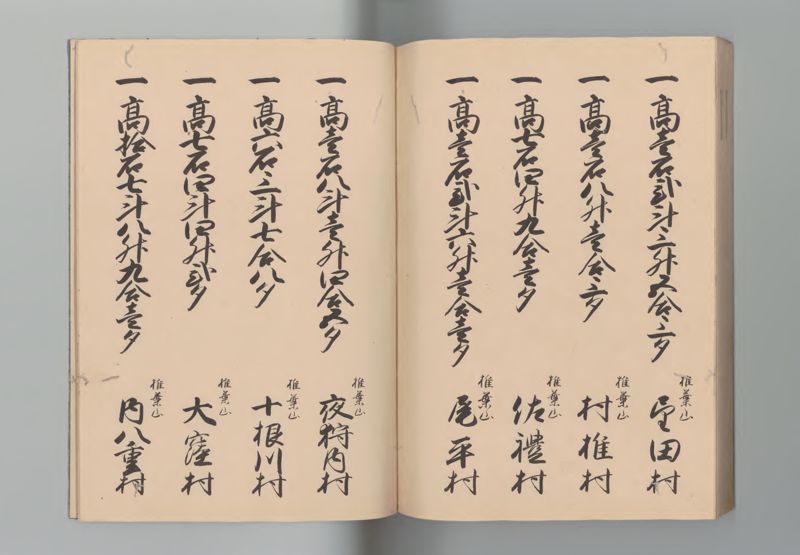 一高壱石弐斗三升五合三夕
椎葉山
田村
一高壱石八升壱合三夕
椎葉山
村椎村
一高七石四升九合壱夕
椎葉山
佐禮村
一高壱石弐斗六升壱合壱夕
椎葉山
尾平村
一高壱石八斗壱升四合五夕
椎葉山
夜狩内村
一高六石三斗七合八夕
椎葉山
十根川村
一高七石四斗四升弐夕
椎葉山
大窪村
一高拾石七斗八升九合壱夕
椎葉山
内八重村